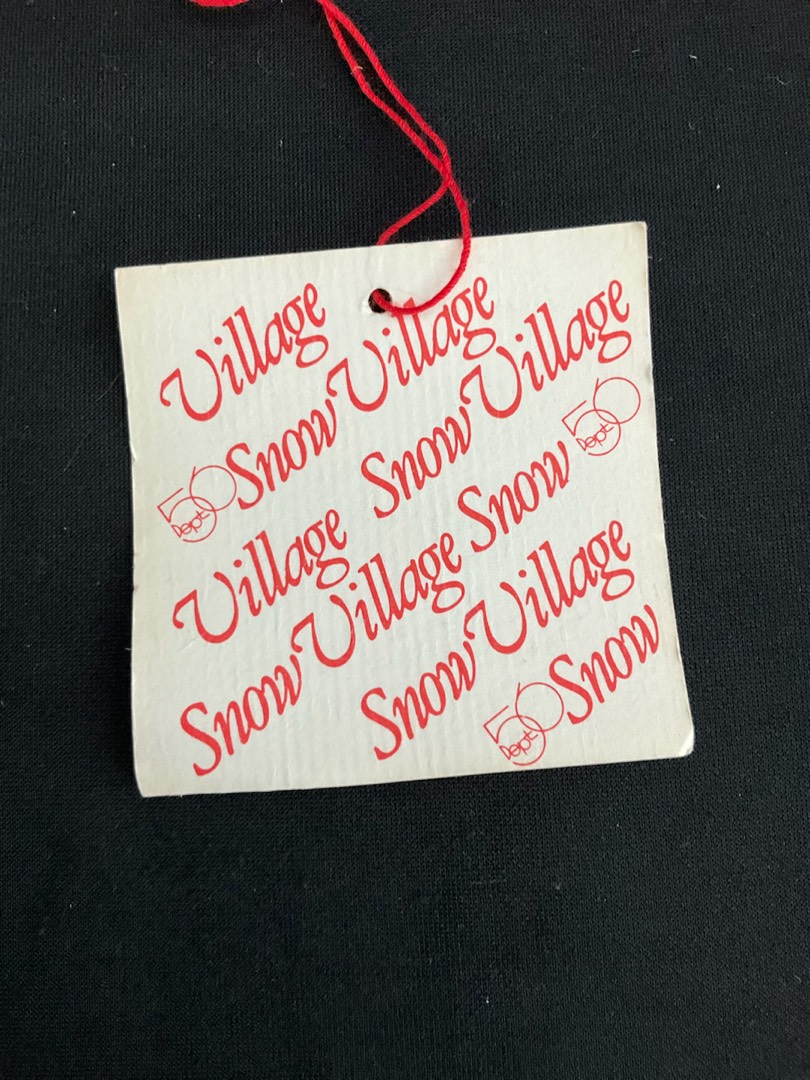 Village
56 Dept Snow Village
Snow Village
Village Snow 56 Dept
Snow Village
Snow Village
56 Dept Snow